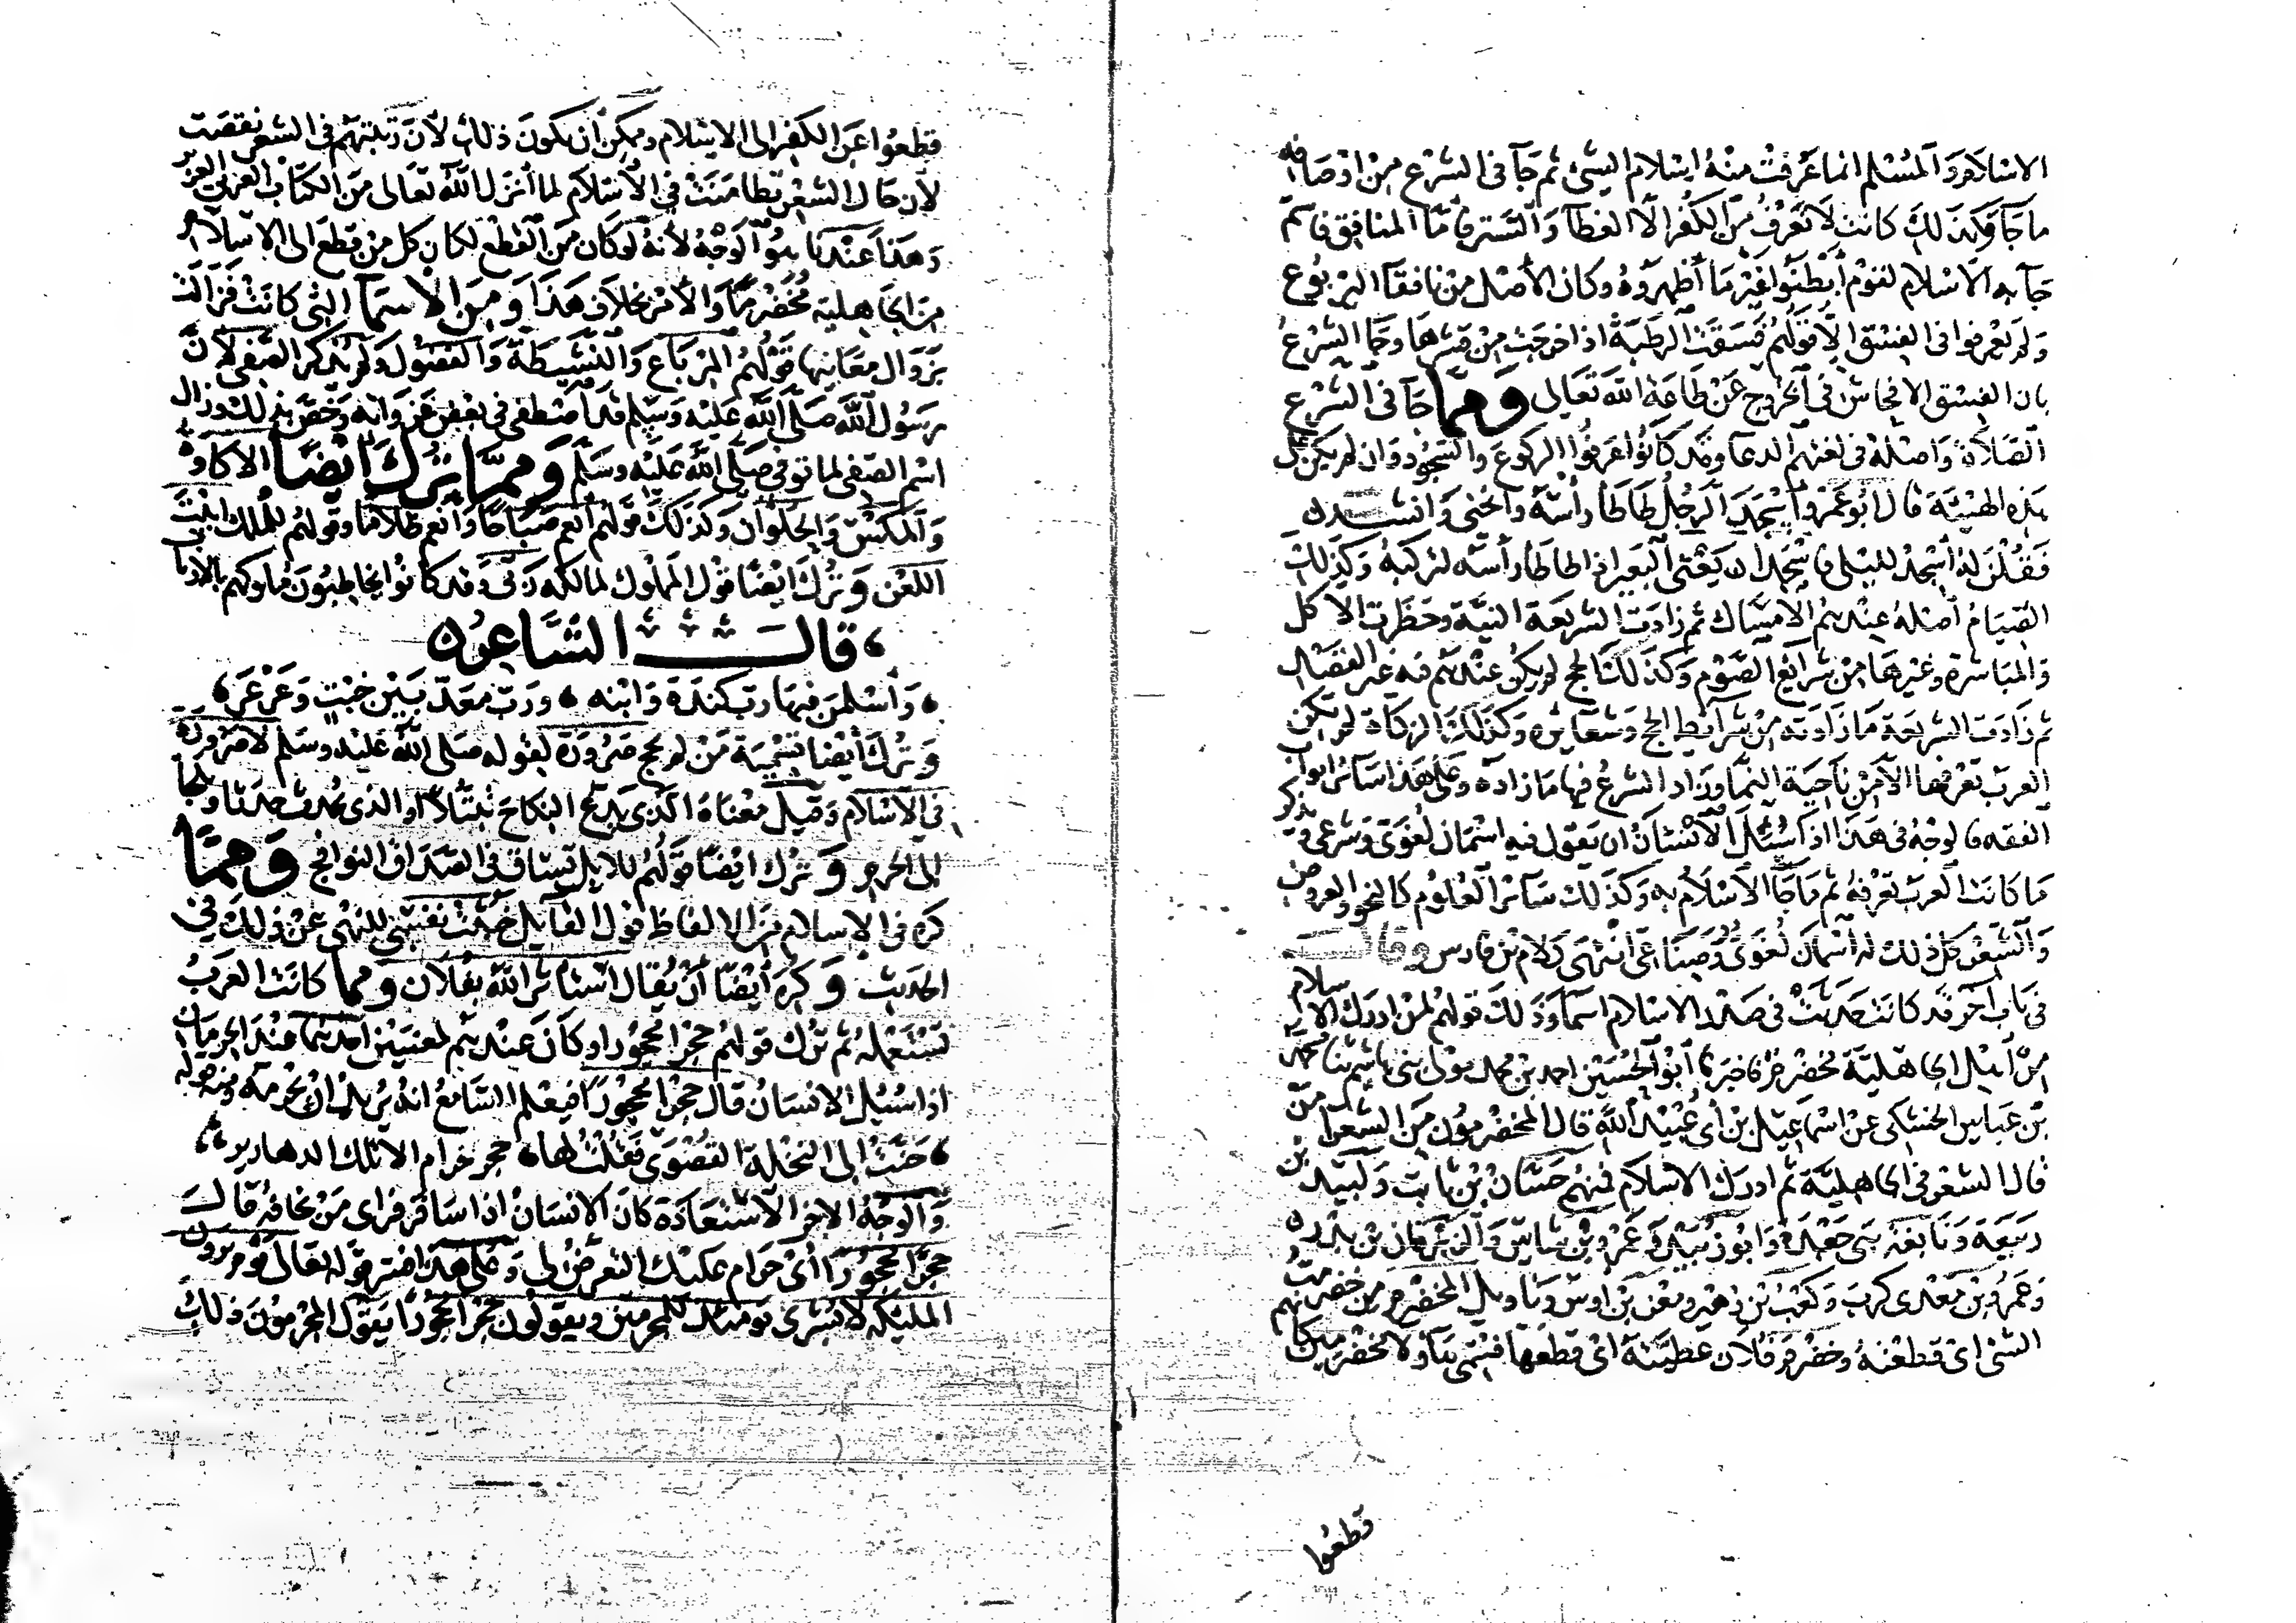 الاسلام والمسلم انما عرفت منه اسلام الشئ ثم جآ فى الشرع من اوصافه
ما جآ وكذلك كانت لا تعرف من الكفر الا الغطآ والتستر فاما المنافق فاسم
جآ به الاسلام لقوم أبطنوا غير ما أظهروه وكان الأصل من نافقآ اليربوع
ولم يعرفوا فى الفسق الا قولهم فسقت الرطبة اذا خرجت من قشرها وجآ الشرع
بان الفسق الافحاش فى الخروج عن طاعة الله تعالى ومما جآ فى الشرع
الصلاة واصله فى لغتهم الدعا وقد كانوا عرفوا الركوع والسجود وان لم يكن على
هذه الهيئة قال ابو عمرو اسجد الرجل طاطا رأسه وانحنى وانشد
فقلن له أسجد لليلى فاسجدا يعنى البعير اذا طاطا رأسه لتركبه وكذلك
الصيام أصله عندهم الامساك ثم زادت الشريعة النية وحظرت الاكل
والمباشرة وغيرها من شرائع الصوم وكذلك الحج لم يكن عندهم فيه غير القصد
ثم زادت الشريعة ما زادته من شرائط الحج وشعائره وكذلك الزكاة لم تكن
العرب تعرفها الا من ناحية النما وزاد الشرع فيها ما زاده وعلى هذا سائر ابواب
الفقه فالوجه فى هذا اذا سئل الانسان ان يقول فيه اسمان لغوى وشرعى ويذكر
ما كانت العرب تعرفه ثم ما جآ الاسلام به وكذلك سائر العلوم كالنحو والعروض
والشعر كل ذلك له اسمان لغوى وصناعى انتهى كلام بن فارس وقال
فى باب آخر قد كانت حدثت فى صدر الاسلام اسما وذلك قولهم لمن ادرك الاسلام
من أهل الجاهلية مخضرم فاخبرنا أبو الحسين احمد بن محمد مولى بنى هاشم ثنا محمد
بن عباس الخشكى عن اسماعيل بن أبى عبيد الله قال المخضرمون من الشعرا من
قال الشعر فى الجاهلية ثم ادرك الاسلام فمنهم حسان بن ثابت ولبيد بن
ربيعة ونابغة بنى جعدة وابو زبيد وعمرو بن شاس والزبرقان بن بدر
وعمرو بن معدى كرب وكعب بن زهير ومعن بن اوس وتاويل المخضرم من خضرمت
الشئ اى قطعته وخضرم فلان عطيته اى قطعها فسمى هآولا مخضرمين كانهم
قطعوا
قطعوا عن الكفر الى الاسلام وممكن ان يكون ذلك لان رتبتهم فى الشعر نقصت
لأن حال الشعر تطامنت فى الاسلام لما أنزل الله تعالى من الكتاب العربى العزيز
وهذا عندنا هو الوجه لأنه لو كان من القطع لكان كل من قطع الى الاسلام
من الجاهلية مخضرما والأمر بخلاف هذا ومن الاسما التى كانت فزالت
بزوال معانيها قولهم المرباع والنشيطة والفضول ولم يذكر الصفى لأن
رسول الله صلى الله عليه وسلم قد اصطفى فى بعض غزواته وخص بذلك وزال
اسم الصفى لما توفى صلى الله عليه وسلم ومما ترك ايضا الاتاوة
والمكس والحلوان وكذلك قولهم أنعم صباحا وانعم ظلاما وقولهم للملك ابيت
اللعن وترك ايضا قول المملوك لمالكه ربى وقد كانوا يخاطبون ملوكهم بالارباب
قال الشاعر
وأسلمن فيها رب كندة وابنه ورب معد بين خبت وعرعر
وترك أيضا تسمية من لم يحج صرورة لقوله صلى الله عليه وسلم لا صرورة
فى الاسلام وقيل معناه الذى يدع النكاح تبتلا او الذى يحدث حدثا ويلجأ
الى الحرم وترك ايضا قولهم للابل تساق فى الصداق النوافج ومما
كره فى الاسلام من الالفاظ قول القائل خبثت نفسى للنهى عن ذلك فى
الحديث وكره أيضا أن يقال استاثر الله بفلان ومما كانت العرب
تستعمله ثم ترك قولهم حجرا محجورا وكان عندهم لمعنيين احدهما عند الحرمان
اذا سئل الانسان قال حجرا محجورا فيعلم السامع انه يريد ان يحرمه ومنه قوله
حنت الى النخلة القصوى فقلت لها حجر حرام الا تلك الدهاريس
والوجه الاخر الاستعاذة كان الانسان اذا سافر فراى من يخافه قال
حجرا محجورا أى حرام عليك التعرض لى وعلى هذا فسر قوله تعالى يوم يرون
المليكه لا بشرى يومئذ للمجرمين ويقولون حجرا محجورا يقول المجرمون ذلك